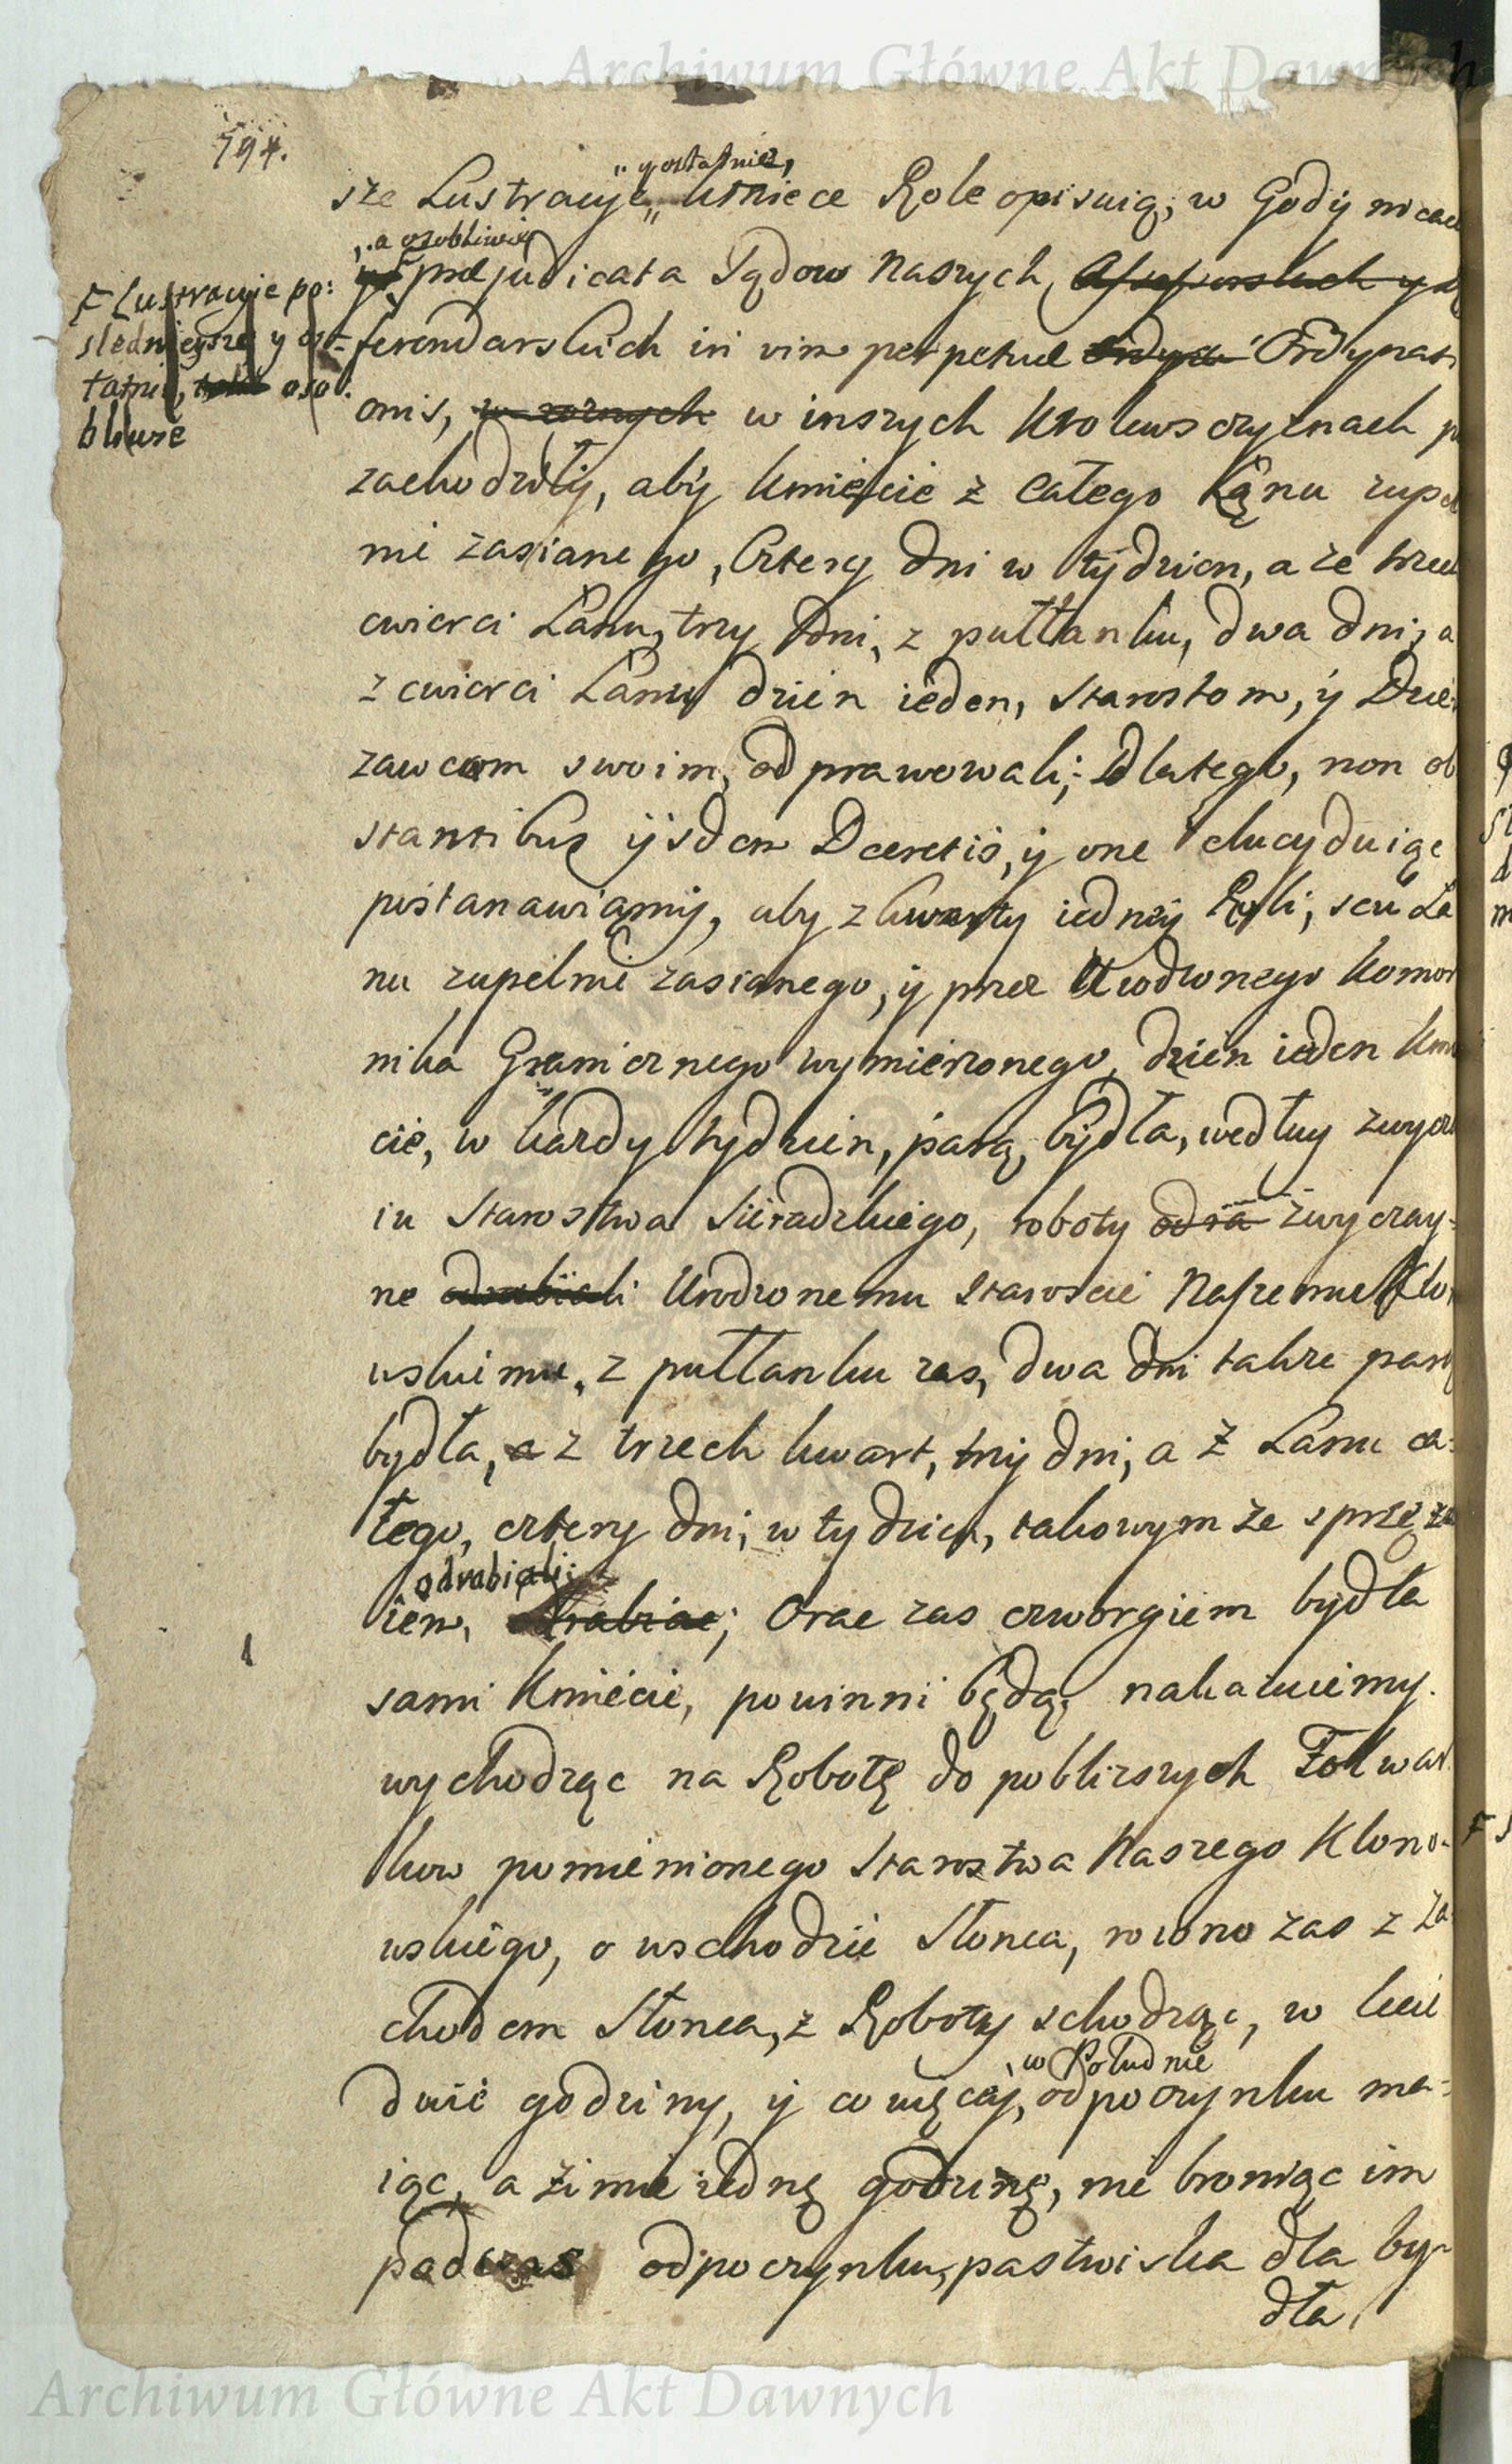 Archiwum Główne Akt Dawnych
194.
„ y ostatnie,
sze Lustracye „ kmiece Role opisuią; w Gody
„ a osobliwie
præjudicata Sądow Naszych,
F Lustracyie po:
slednieysze y os=
tatnie, oso:
bliwse
ferendarskich in vim perpetuæ Ordynati
onis, w roznych w inszych Krolewszczyznach
zachodziły, aby kmiecie z całego Łanu zupeł
nie zasianego, Cztery dni w tydzien, a ze trzech
cwierci Łanu, trzy dni, z pułłanku, dwa dni, a
z cwierci Łanu dzien ieden, Starostom, y Dzier
zawcom swoim, odprawowali; Dlatego, non ob
stantibus ijsdem Decretis, y one elucyduiąc
postanawiamy, aby z kwarty iedney Roli, seu Ła
nu zupełnie zasianego, y przez Urodzonego Komor
nika Granicznego wymierzonego, dzien ieden Kmie
cie, w kazdy tydzien, parą bydła, według zwycza
iu Starostwa Sieradzkiego, roboty odra zwyczay=
ne odrabiali Urodzonemu Staroscie Naszemu Klo
wskimu, z pułłanku zas, dwa dni takze parą
bydła, a z trzech kwart, trzy dni, a z Łanu ca=
łego, cztery dni, w tydzien, takowym ze sprzęza
odrabiali;
iem, ; Orac zas czworgiem bydła
sami Kmiecie, powinni będą, nakazuiemy.
wychodząc na Robotę do poblizszych Folwar
kow pomienionego Starostwa Naszego Klono=
wskiego, o wschodzie Słonca, rowno zas z za
chodem Słonca, z Roboty schodząc, w lecie
, w Południe
dwie godziny, y co więcey, odpoczynku ma=
iąc, a zimie iedną godzinę, nie broniąc im
podczas odpoczynku, pastwiska dla by=
dła,
Archiwum Główne Akt Dawnych